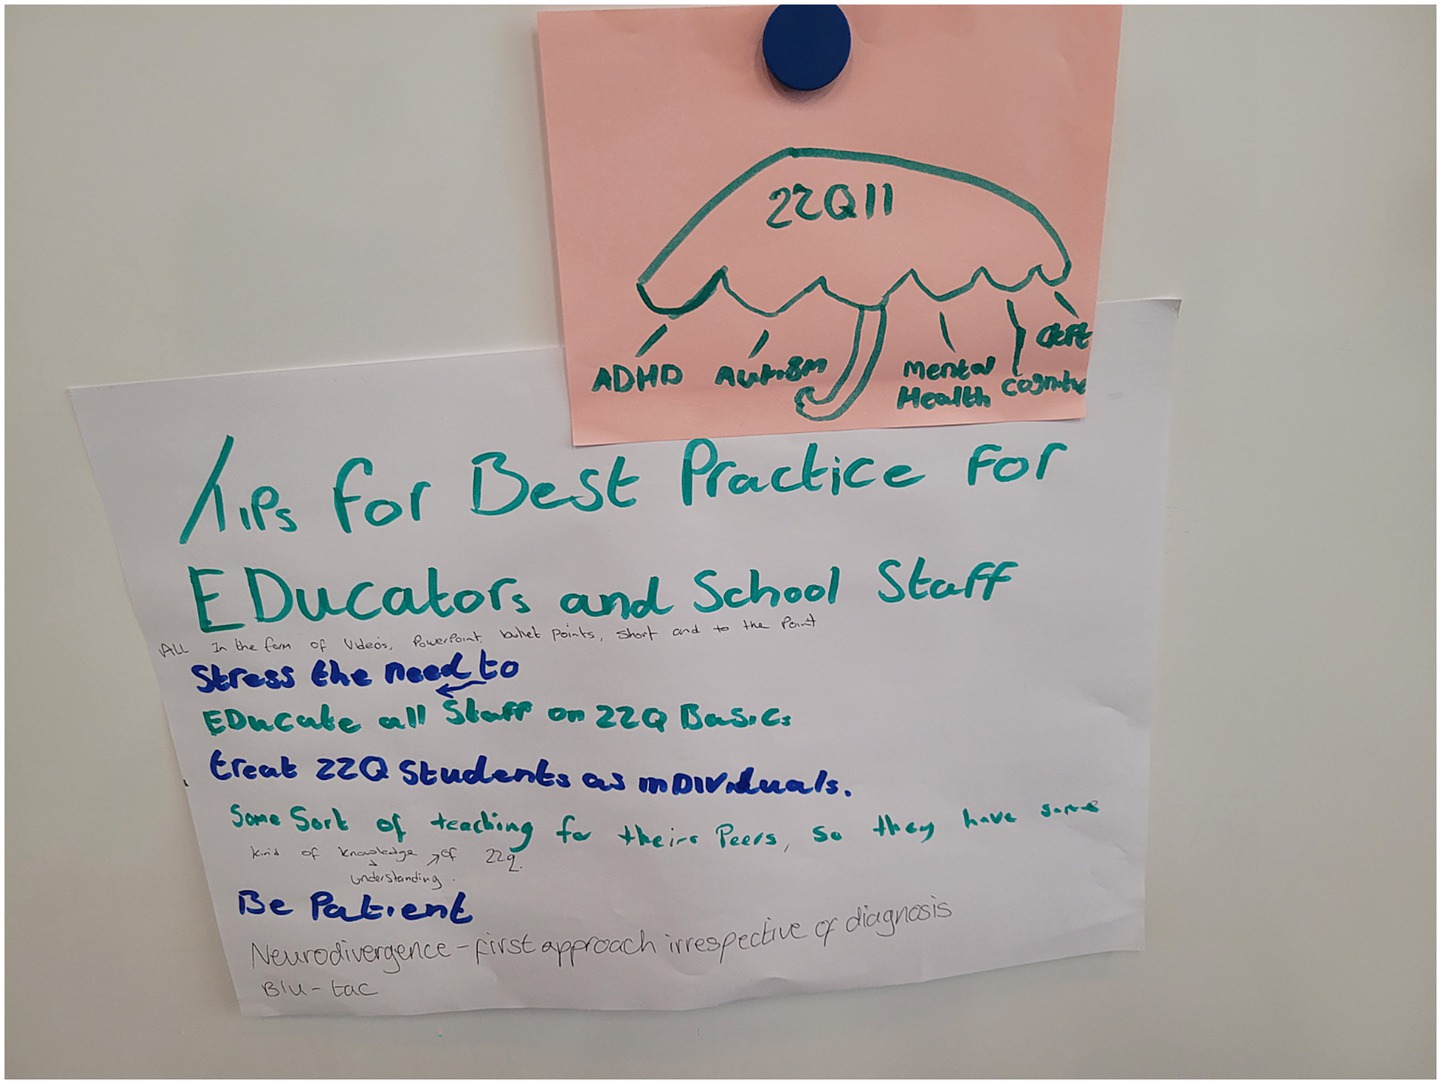 22Q11
ADHD Autism Mental Health Cognitive
Tips for Best Practice For
EDucators and School Staff
All In the form of Videos, PowerPoint, bullet points, short and to the Point
Stress the need to
EDucate all Staff on 22Q Basics
treat 22Q Students as inDividuals.
Some Sort of teaching for theirs Peers, so they have some
kind of knowledge of 22q.
understanding.
Be Patient
Neurodivergence-first approach irrespective of diagnosis
Blu-tac